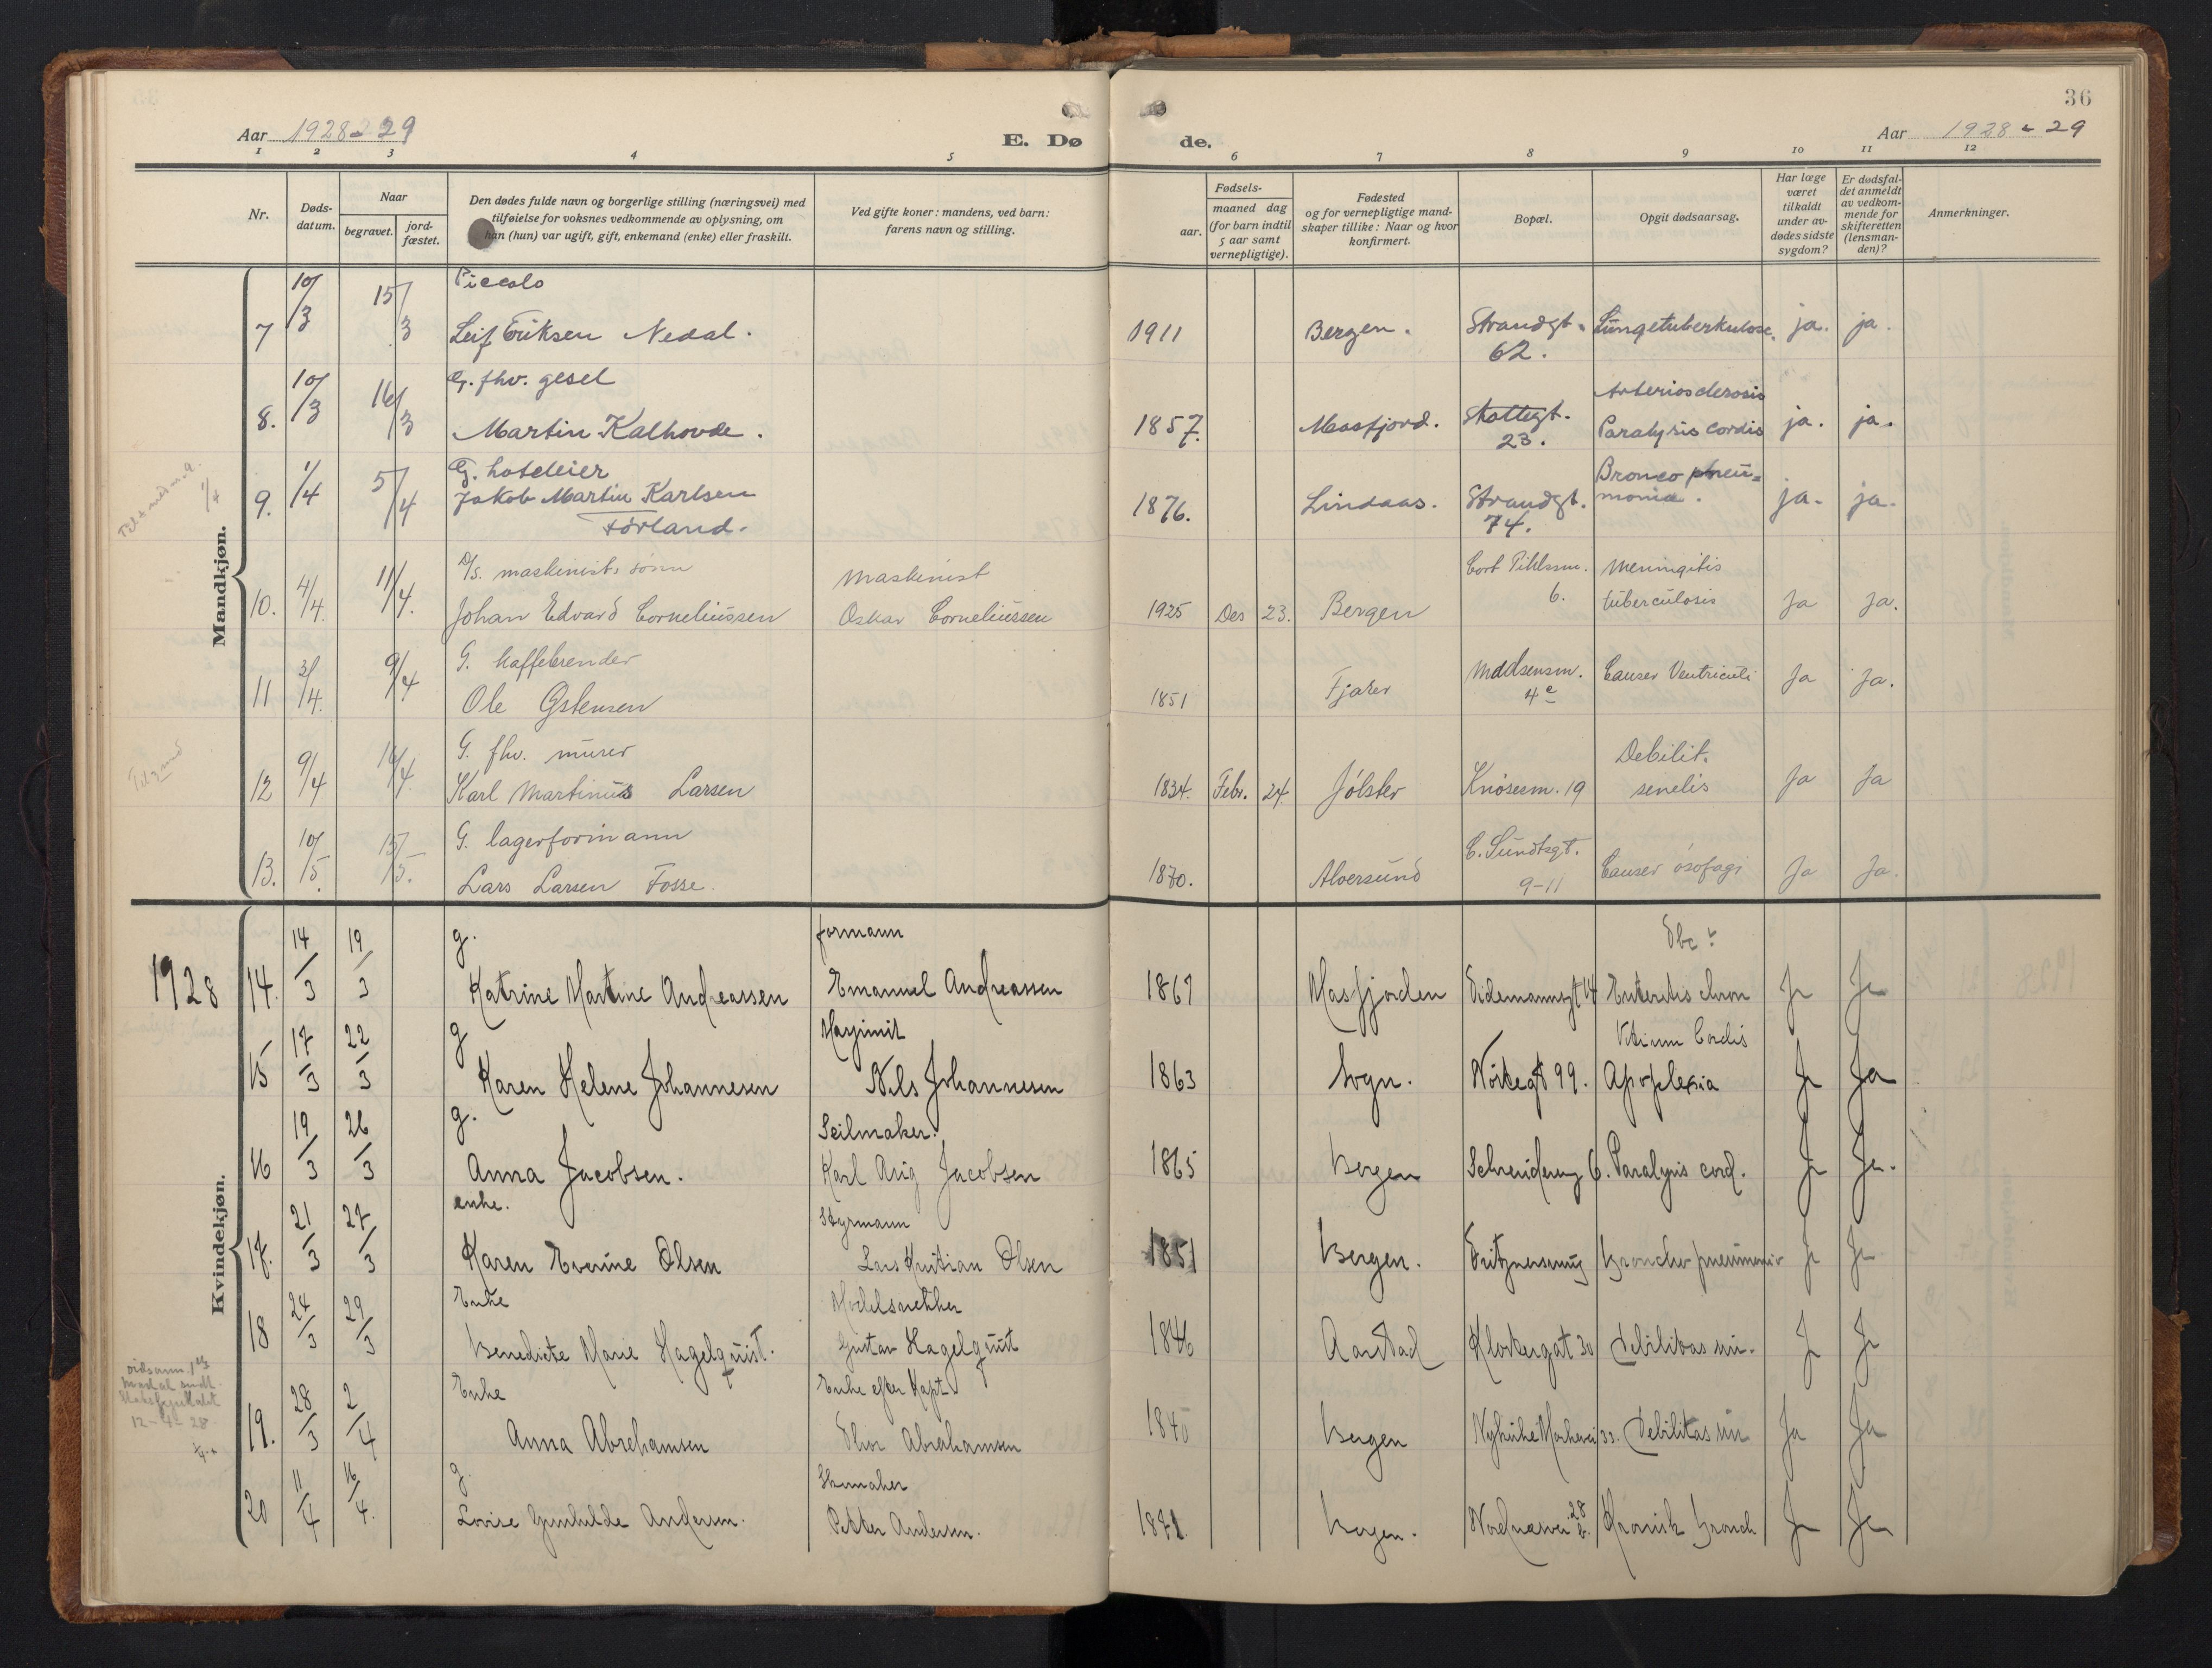 36
Aar 1928-29
E. Dø
de.
Aar 1928-29
1 2 3 4 5 6 7 8 9 10 11 12
Nr.
Døds-
datum.
Naar
begravet.
jord-
fæstet.
Den dødes fulde navn og borgerlige stilling (næringsvei) med
tilføielse for voksnes vedkommende av oplysning, om
han (hun) var ugift, gift, enkemand (enke) eller fraskilt.
Ved gifte koner: mandens, ved barn:
farens navn og stilling.
Fødsels-
aar.
maaned dag
(for barn indtil
5 aar samt
vernepligtige).
Fødested
og for vernepligtige mand-
skaper tillike: Naar og hvor
konfirmert.
Bopæl.
Opgit dødsaarsag.
Har læge
været
tilkaldt
under av-
dødes sidste
sygdom?
Er dødsfal-
det anmeldt
av vedkom-
mende for
skifteretten
(lensman-
den)?
Anmerkninger.
Mandkjøn.
Piccolo
7 10/3 15/3 Leif Eriksen Nedal. 1911 Bergen. Strandgt. 62. Lungetuberkulose. ja. ja.
G. fhv. gesel Arteriosclerosis
8. 10/3 16/3 Martin Kalhovde. 1857. Masfjord. Skottegt. 23. Paralysis cordis ja. ja.
G. hoteleier Bronco pneu=
9. 1/4 5/4 Jakob Martin Karlsen 1876. Lindaas. Strandgt. 74. monia. ja. ja.
Förland.
D/s. maskinists sønn maskinist Cort Pihlssm. Meningitis
10. 4/4 11/4. Johan Edvard Corneliussen Oskar Corneliussen 1925 Des 23. Bergen 6. tuberculosis Ja Ja.
G. kaffebrender
11 3/4. 9/4 Ole Gstensen 1851 Fjaler Madsensm. 4c Cancer Ventriculi Ja Ja.
G. fhv. murer Debilit.
12 9/4 14/4. Karl Martinus Larsen 1834. Febr. 24 Jölster Knösesm. 19 senelis Ja Ja
G. lagerformann C. Sundtsgt.
13. 10/5. 15/5. Lars Larsen Fosse. 1870. Alversund 9-11 Cancer ösofagi Ja Ja.
1928
Kvindekjøn.
g. formann
14. 14/3 19/3 Katrine Martine Andreassen Emanuel Andreassen 1867 Masfjorden Eidemannsgt 14 Enteritis chron Ja Ja
g Maskinist Vitium Cordis
15 17/3 22/3 Karen Helene Johannesen Nils Johannesen 1863 Sogn. Nöstegt 99. Apoplexia Ja Ja
g. Seilmaker.
16 19/3 26/3 Anna Jacobsen. Karl Aug Jacobsen 1865 Bergen 6. Paralysis cord. Ja Ja.
enke. Styrmann
17. 21/3 27/3 Karen Everine Olsen Lars Kristian Olsen 1851 Bergen. Fritznersmug Broncho pneumoni Ja Ja
Enke Modelsnekker
18 24/3 29/3 Benedicte Marie Hagelquist. Gustav Hagelquist 1846 Aarstad Klostergat 30 Debilitas sin. Ja Ja
Enke Enke efter Kapt.
19. 28/3 2/4 Anna Abrahamsen Thor Abrahamsen 1840 Bergen 33. Debilitas sin Ja Ja
g. Skomaker
20 11/4 16/4. Lovise Gunhilde Andersen. Petter Andersen. 1871. Bergen. Nordnesvei 28 b. Kronisk Bronch Ja Ja
12-4-28